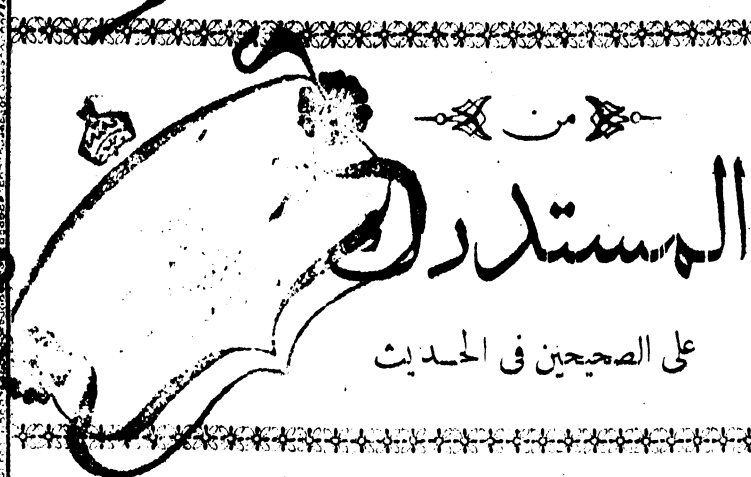 من
المستدرك
على الصحيحين فى الحديث